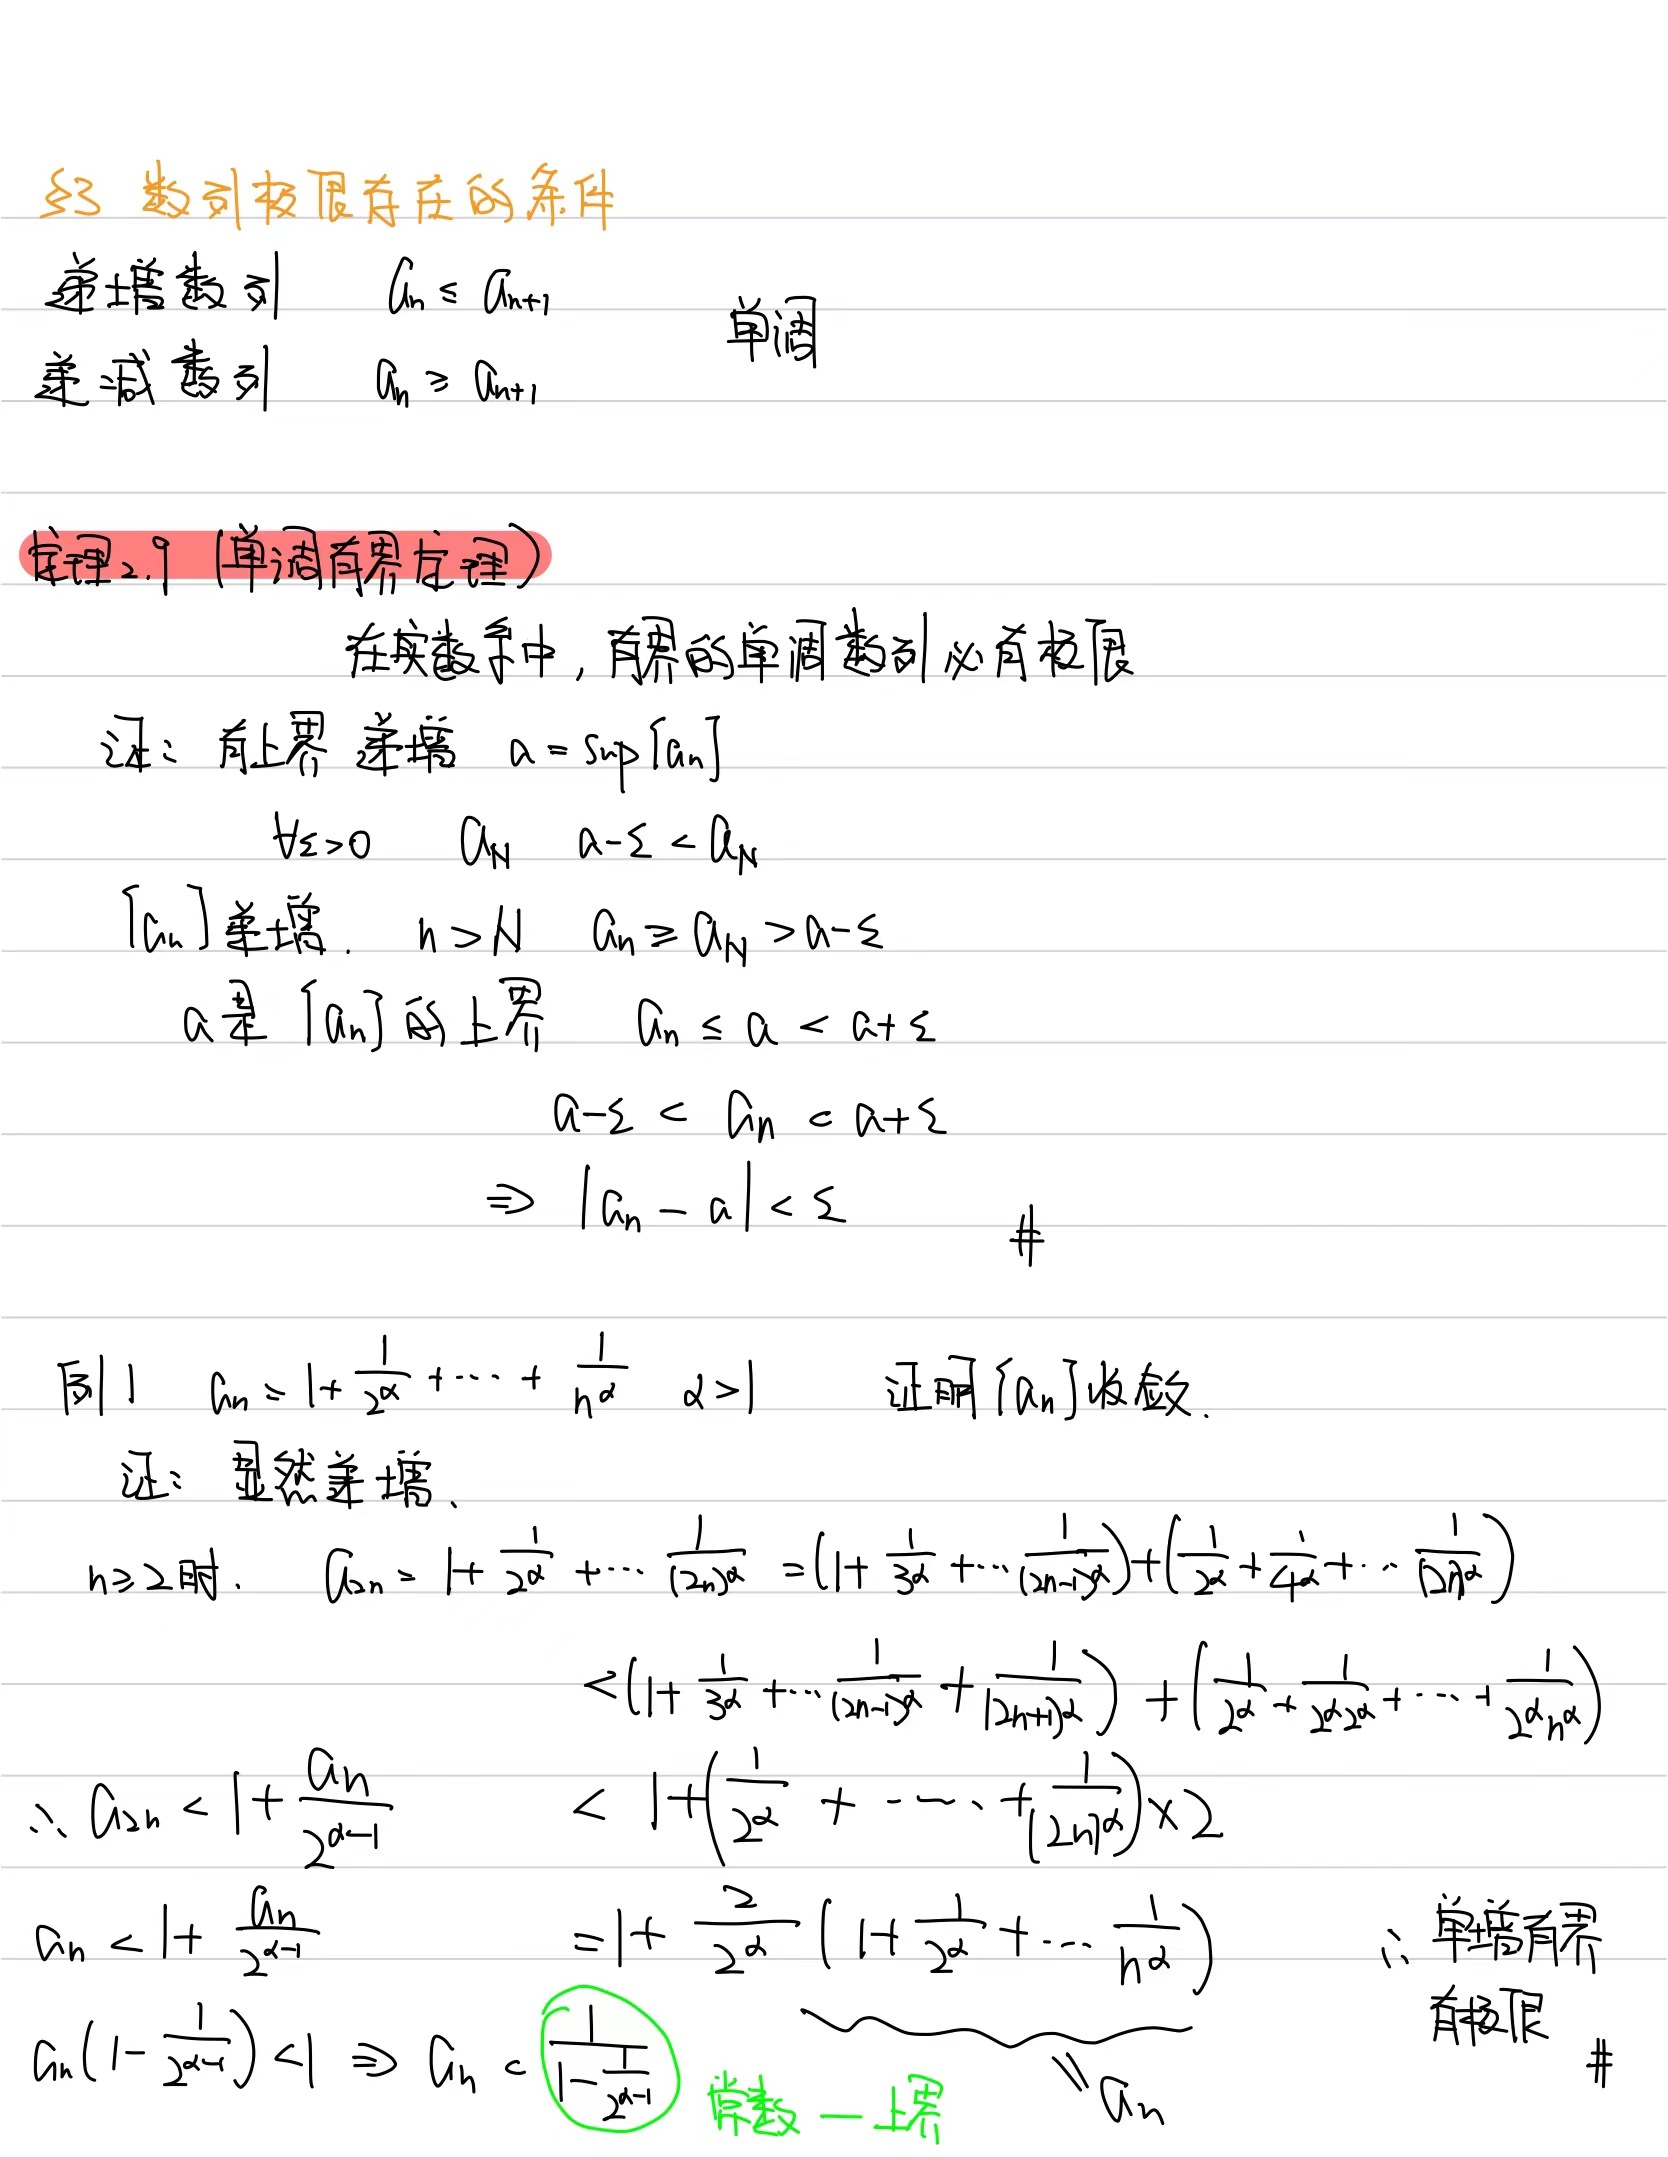 §3 数列极限存在的条件
递增数列 aₙ ≤ aₙ₊₁
单调
递减数列 aₙ ≥ aₙ₊₁
定理2.9 (单调有界定理)
在实数系中, 有界的单调数列必有极限
证: 有上界 递增 a = sup{aₙ}
∀ε>0 a_N a-ε < a_N
{aₙ}递增. n > N aₙ ≥ a_N > a-ε
a是{aₙ}的上界 aₙ ≤ a < a+ε
a-ε < aₙ < a+ε
⇒ |aₙ - a| < ε #
例1 aₙ = 1+1/2^α+⋯+1/n^α α>1 证明{aₙ}收敛.
证: 显然递增.
n≥2时. a₂ₙ = 1+1/2^α+⋯1/(2n)^α = (1+1/3^α+⋯1/(2n-1)^α)+(1/2^α+1/4^α+⋯1/(2n)^α)
<(1+1/3^α+⋯1/(2n-1)^α+1/(2n+1)^α)+(1/2^α+1/(2^α2^α)+⋯+1/(2^αn^α))
∴ a₂ₙ < 1+aₙ/2^(α-1) < 1+(1/2^α+⋯+1/(2n)^α)×2
aₙ < 1+aₙ/2^(α-1) = 1+2/2^α(1+1/2^α+⋯1/n^α) ∴ 单增有界
有极限 #
aₙ(1-1/2^(α-1))<1 ⇒ aₙ < 1/(1-1/2^(α-1)) 常数—上界 = aₙ